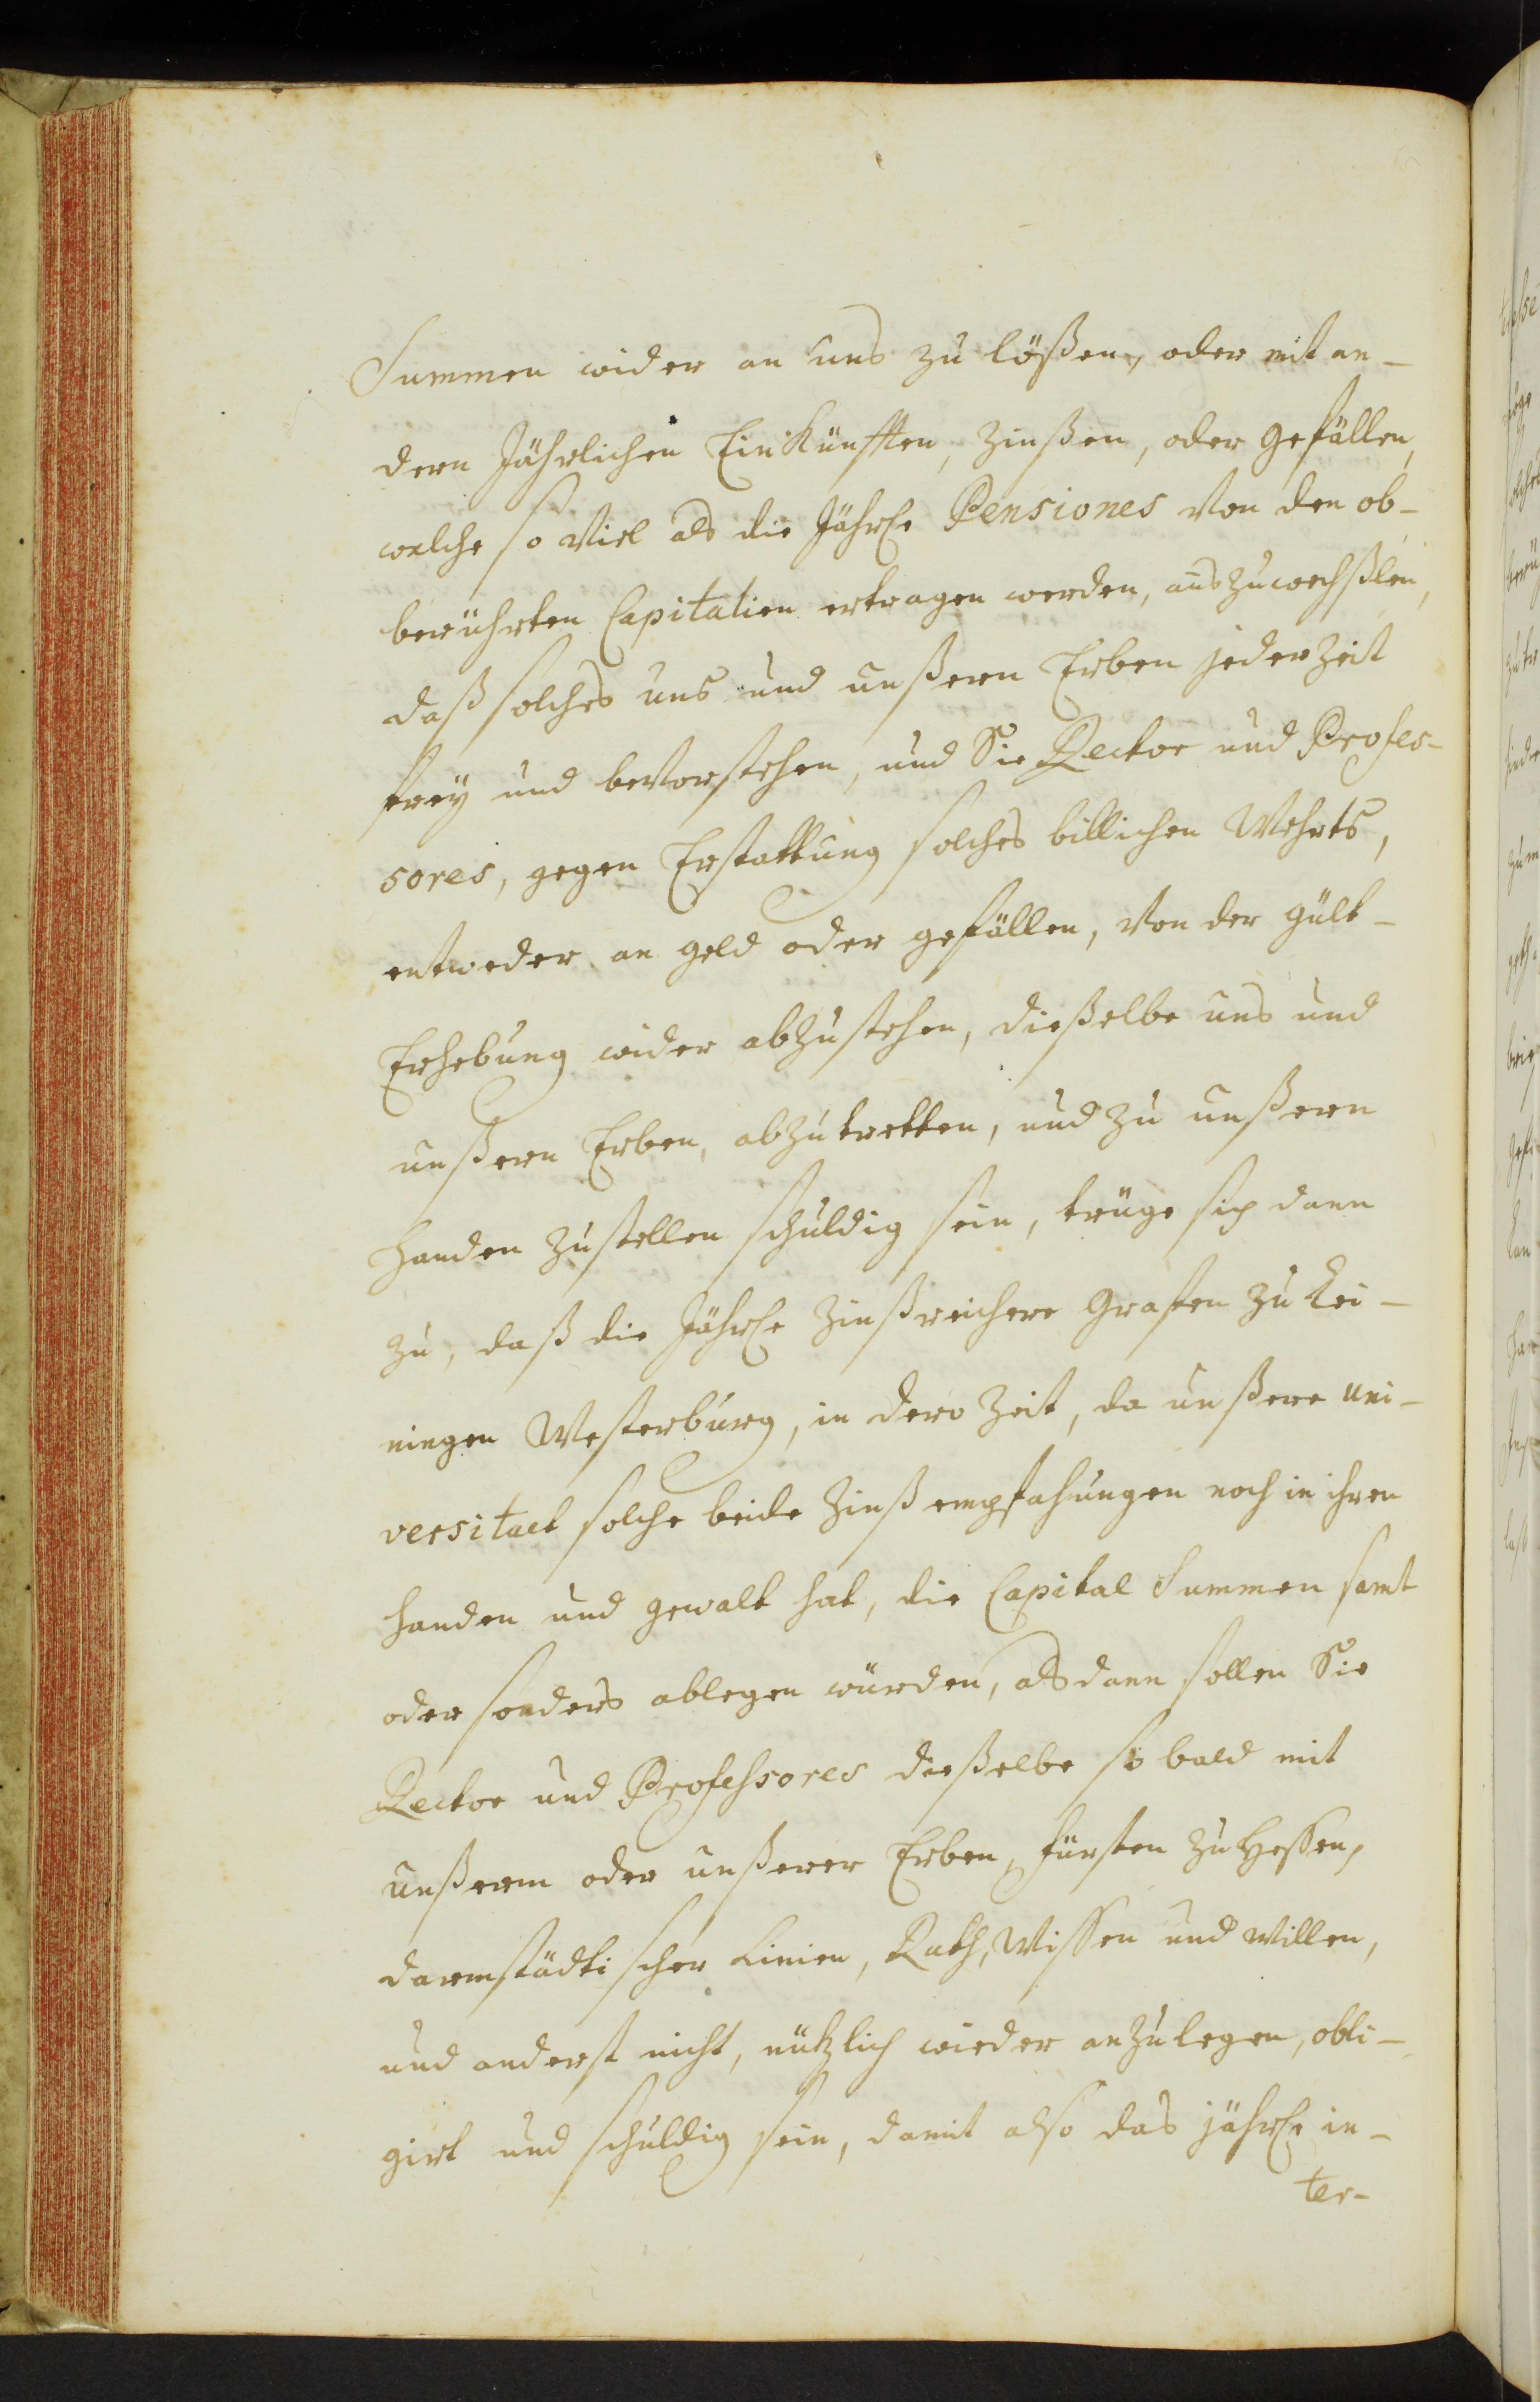 Summen wider an uns zu lößen, oder mit an-
dern Jährlichen Einkünfften, Zinßen, oder gefällen,
welche so viel als die Jährl. Pensiones von den ob-
berührten Capitalien ertragen werden, auszuwechßlen,
daß solches uns und unßern Erben jederzeit
frey und bevorstehen, und Sie Rector und Profes-
sores, gegen Erstattung solches billichen Wehrts,
entweder an geld oder gefällen, von der gült-
Erhebung wider abzustehen, dießelbe uns und
unßern Erben, abzutretten, und zu unßern
handen zustellen schuldig sein, trüge sich dann
zu, daß die Jährl. Zinßreichere Graffen zu Lei-
ningen Westerburg, in dero Zeit, da unßere uni-
versitaet solche beide Zinß empfahungen noch in ihren
handen und gewalt hat, die Capital Summen samt
oder sonders ablegen würden, als dann sollen Sie
Rector und Professores dießelbe so bald mit
unßerm oder unßerer Erben, fürsten zu Hessen,
darmstädtischer Linien, Rath, Wissen und willen,
und anderst nicht, nützlich wieder anzulegen, obli-
girt und schuldig sein, damit also das jährl. in-
ter-